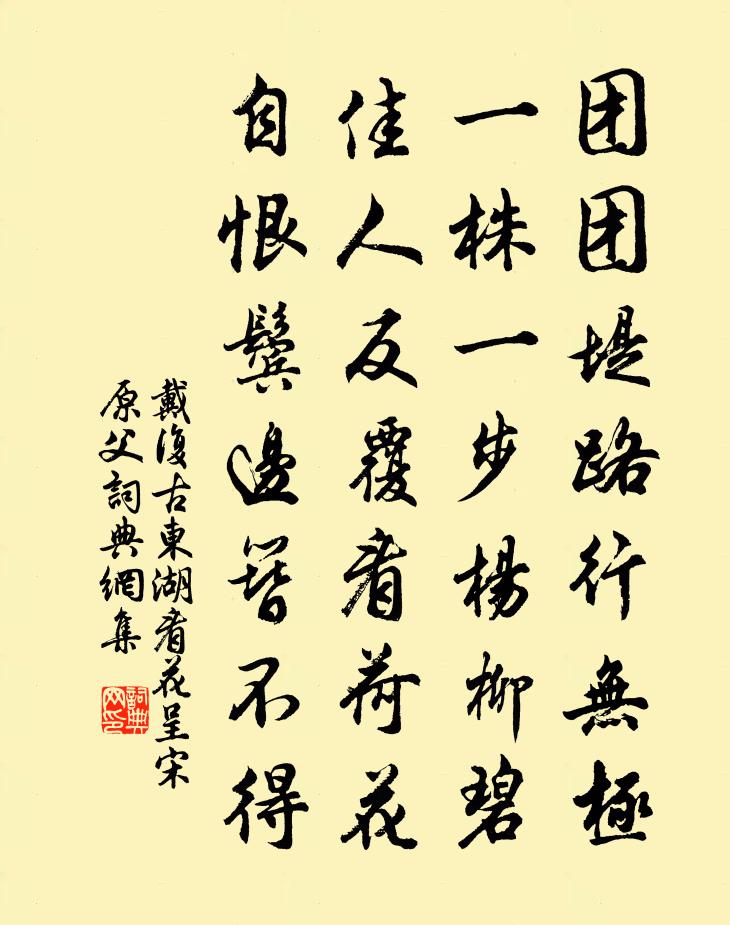 团团堤路行無極
一株一步楊柳碧
佳人反覆看荷花
自恨鬓邊簪不得
戴復古東湖看花呈宋
原父詞典網集
詞典
网印